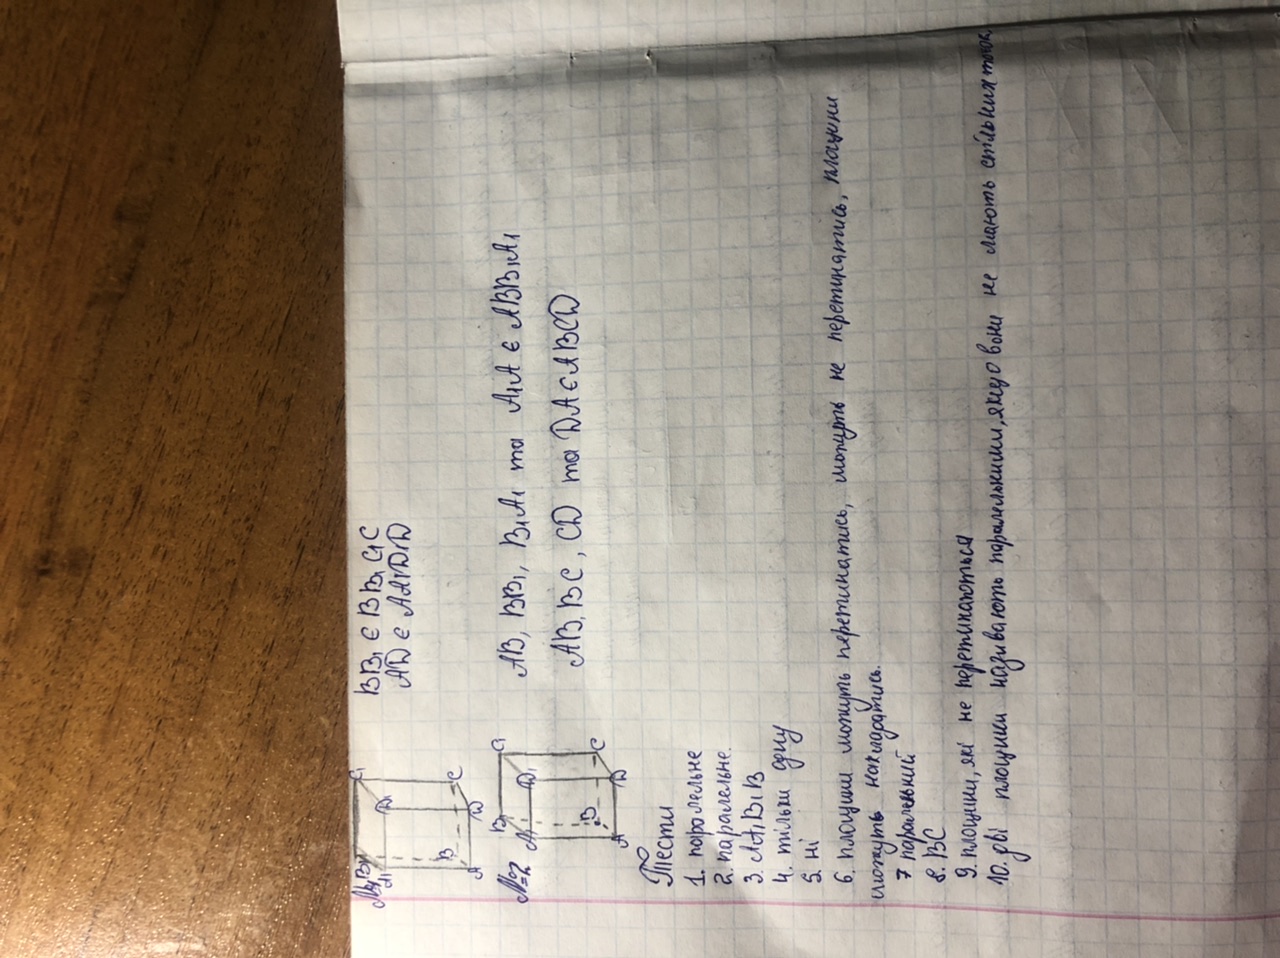 №1
B1
C1
A1
D1
B
C
A
D
BB1 є BB1C1C
AD є AA1D1D
№2
B1
C1
A1
D1
B
C
A
D
AB, BB1, B1A1 та A1A є ABB1A1
AB, BC, CD та DA є ABCD
Тести
1. паралельне
2. паралельне.
3. AA1B1B
4. тільки одну
5. ні
6. площини можуть перетинатись, можуть не перетинатись, площини
можуть накладатись.
7 паралельний
8. BC
9. площини, які не перетинаються
10. дві площини називають паралельними, якщо вони не мають спільних точок